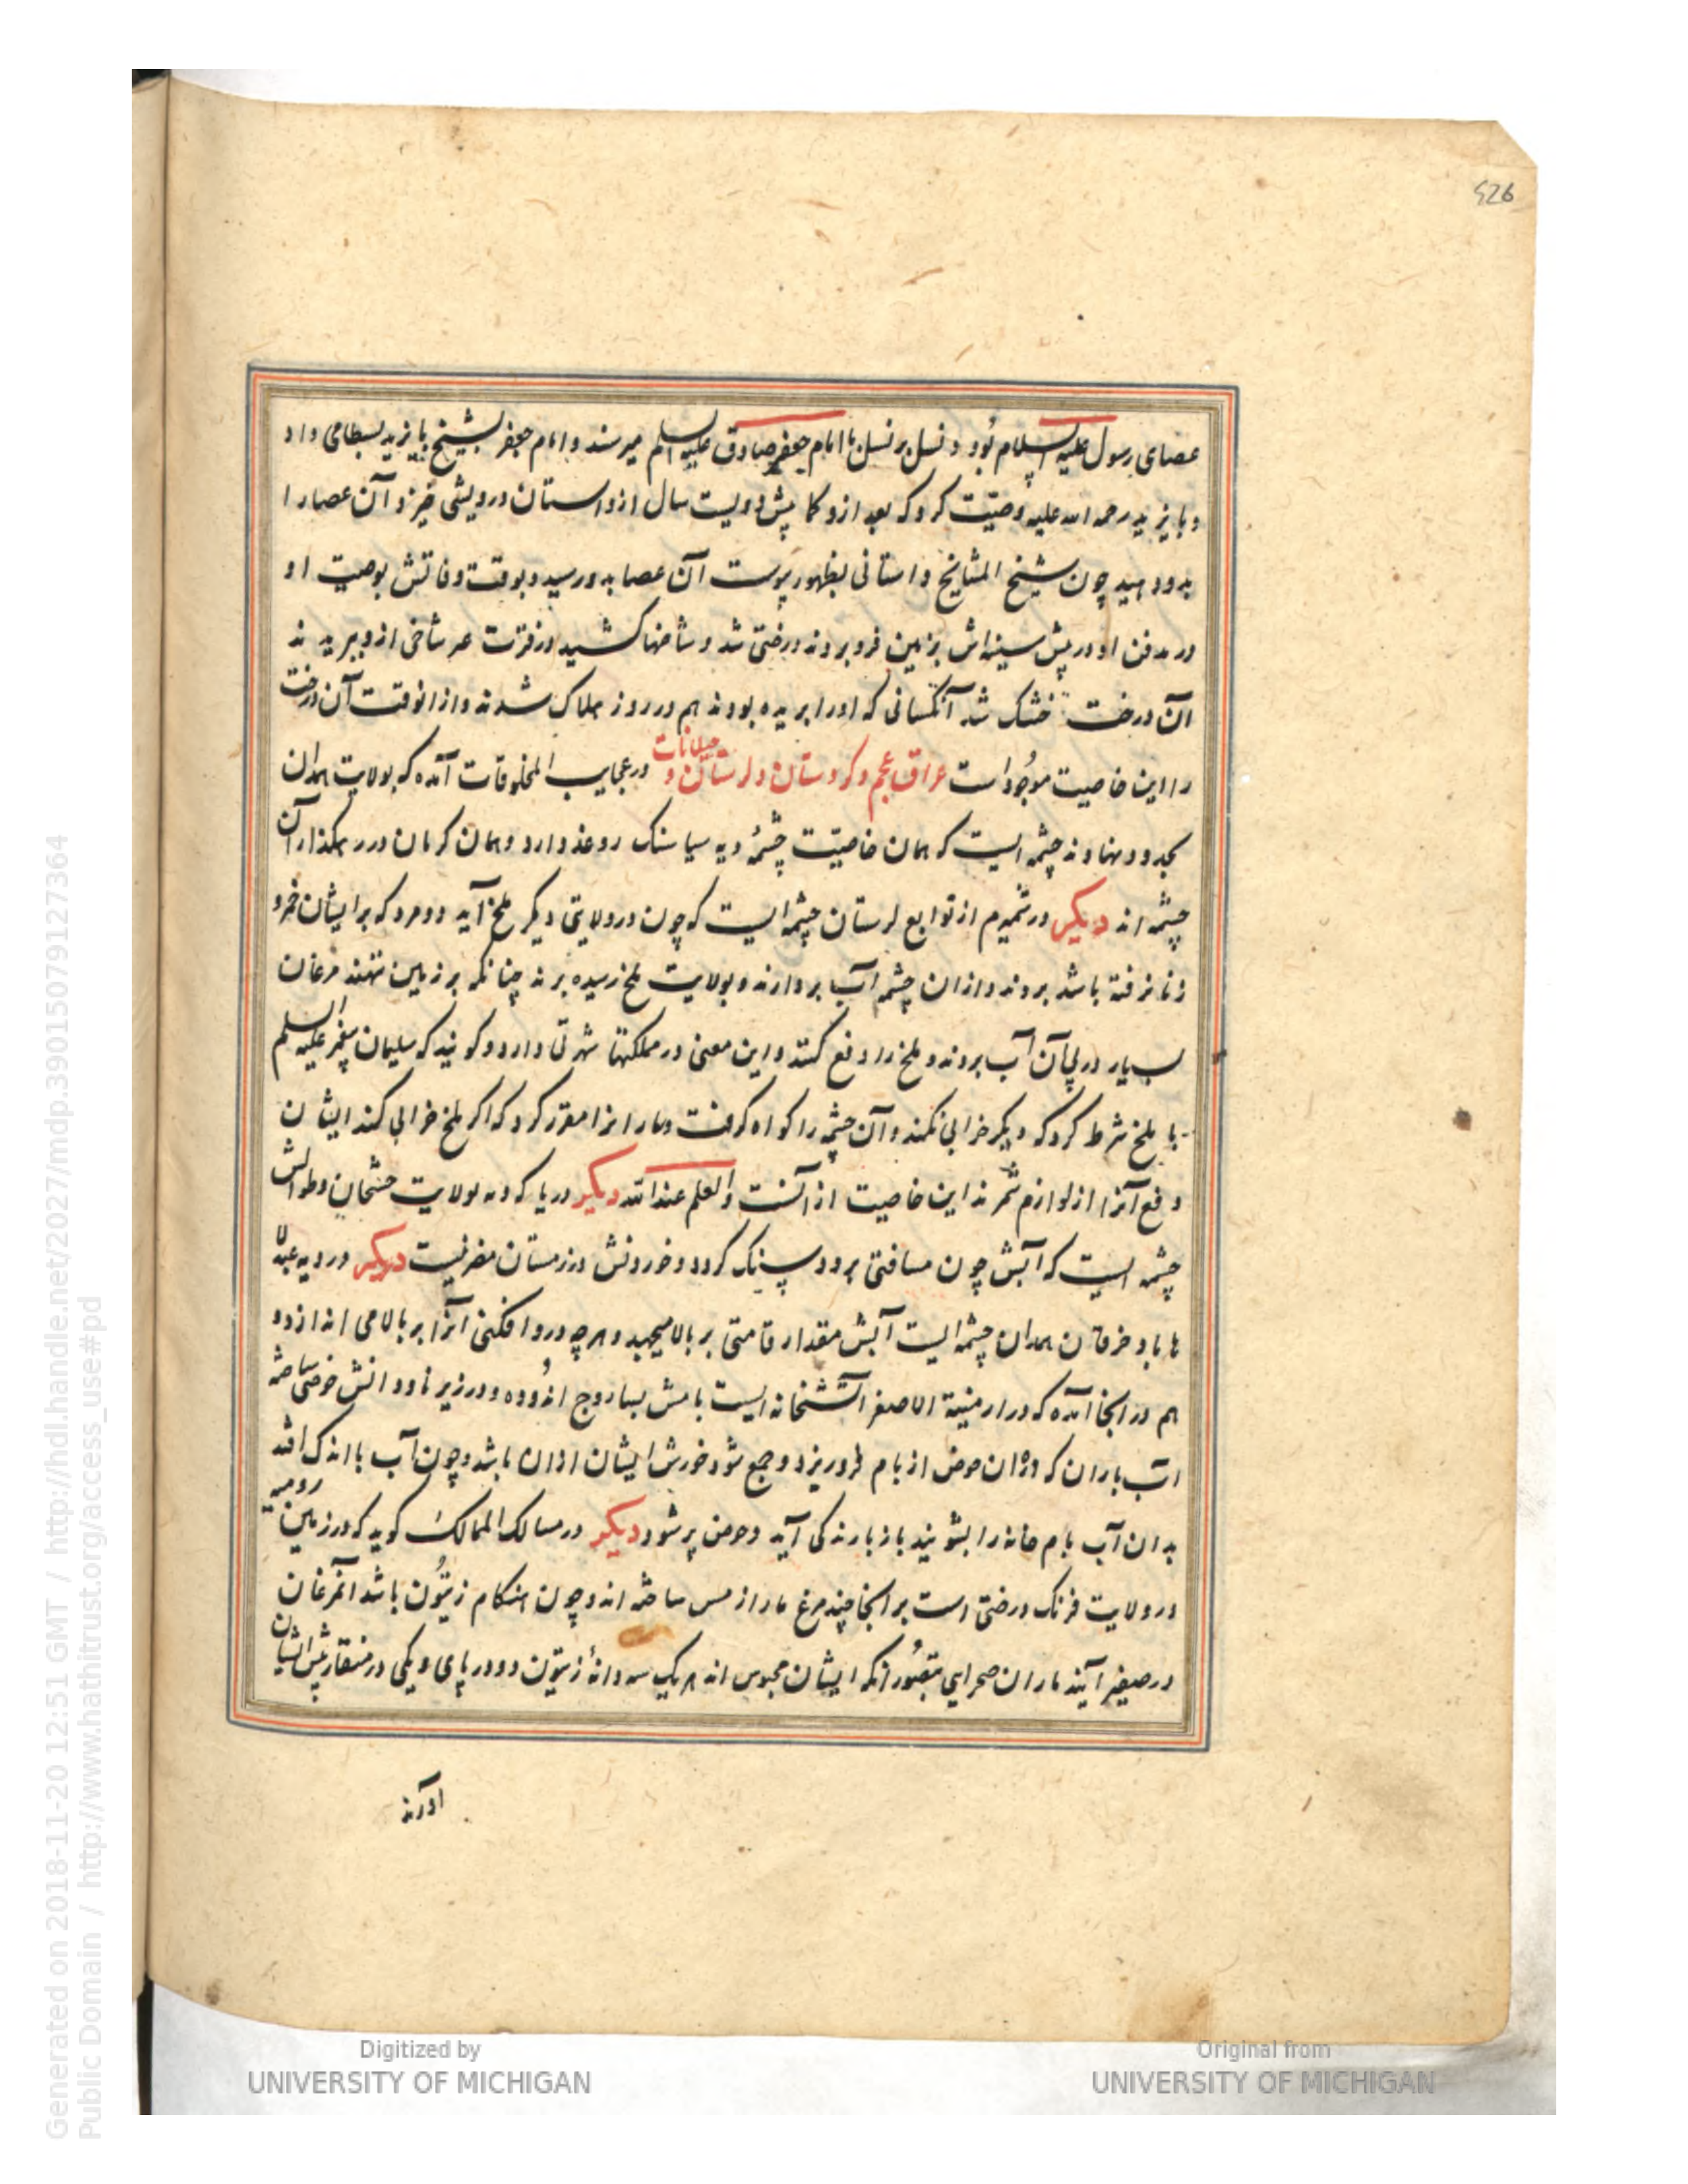 526
عصای رسول علیه السلام بود و نسل بر نسل با امام جعفر صادق علیه السلم میرسند و امام جعفر بشیخ بایزید بسطامی داد
و بایزید رحمه الله علیه وصیّت کرد که بعد ازو کما پیش دویست سال از داستان درویشی خیزد آن عصا را
بدو دهید چون شیخ المشایخ داستانی بظهور پیوست آن عصا بدو رسید و بوقت وفاتش بوصیت او
در مدفن او در پیش سینه‌اش بزمین فرو بردند درختی شد و شاخها کشید در فترت عر شاخی ازو ببریدند
آن درخت خشک شد آنکسانی که او را بریده بودند هم در روز هلاک شدند و از انوقت آن درخت
را این خاصیت موجود است عراق عجم و کردستان و لرستان و جیلانات در عجایب المخلوقات آمده که بولایت همدان
بحدود نهاوند چشمه ایست که همان خاصیّت چشمهٔ دیه سیا سنک روغد دارد و همان کرمان در رهکذار آن
چشمه اند دیکر در شمیرم از توابع لرستان چشمه ایست که چون در ولایتی دیکر ملخ آید دو مرد که برایشان خمر و
زنا نرفته باشد بروند و از ان چشمه آب بردارند و بولایت ملخ رسیده برند چنانکه بر زمین ننهند مرغان
بسیار در پی آن آب بروند و ملخ را دفع کنند و این معنی در مملکتها شهرتی دارد و کویند که سلیمان پیغمبر علیه السلم
با ملخ شرط کرد که دیکر خرابی نکند و آن چشمه را کواه کرفت و سارانرا مقرر کرد که اکر ملخ خرابی کند ایشان
دفع آنرا از لوازم شمرند این خاصیت از آنست و العلم عند الله دیکر در یا که ده بولایت خشخان و طوالش
چشمه ایست که آبش چون مسافتی برود سنک کردد و خوردنش در زمستان مضر نیست دیکر در دیه عبد الا
باباد خرقان همدان چشمه ایست آبش مقدار قامتی بر بالا میجهد و هرچه درو افکنی آنرا بر بالا می اندازد و
هم در انجا آمده که در ارمنیة الاصغر آتشخانه ایست بامش بساروج اندوده و در زیر ناودانش حوضی ساخته
آب باران که در ان حوض از بام فرو ریزد و جمع شود خورش ایشان از ان باشد و چون آب با اندک افتد
بدان آب بام خانه را بشویند باز بارندکی آید و حوض پر شود دیکر در مسالک الممالک کوید که در زمین رومیه
در ولایت فرنک درختی است بر انجا چند مرغ سار از مس ساخته اند و چون هنکام زیتون باشد آنمرغان
در صفیر آیند ساران صحرایی بتصور انکه ایشان محبوس اند هر یک سه دانهٔ زیتون دو در پای و یکی در منقار پیش ایشان
آورند
Generated on 2018-11-20 12:51 GMT / http://hdl.handle.net/2027/mdp.39015079127364
Public Domain / http://www.hathitrust.org/access_use#pd
Digitized by
UNIVERSITY OF MICHIGAN
Original from
UNIVERSITY OF MICHIGAN